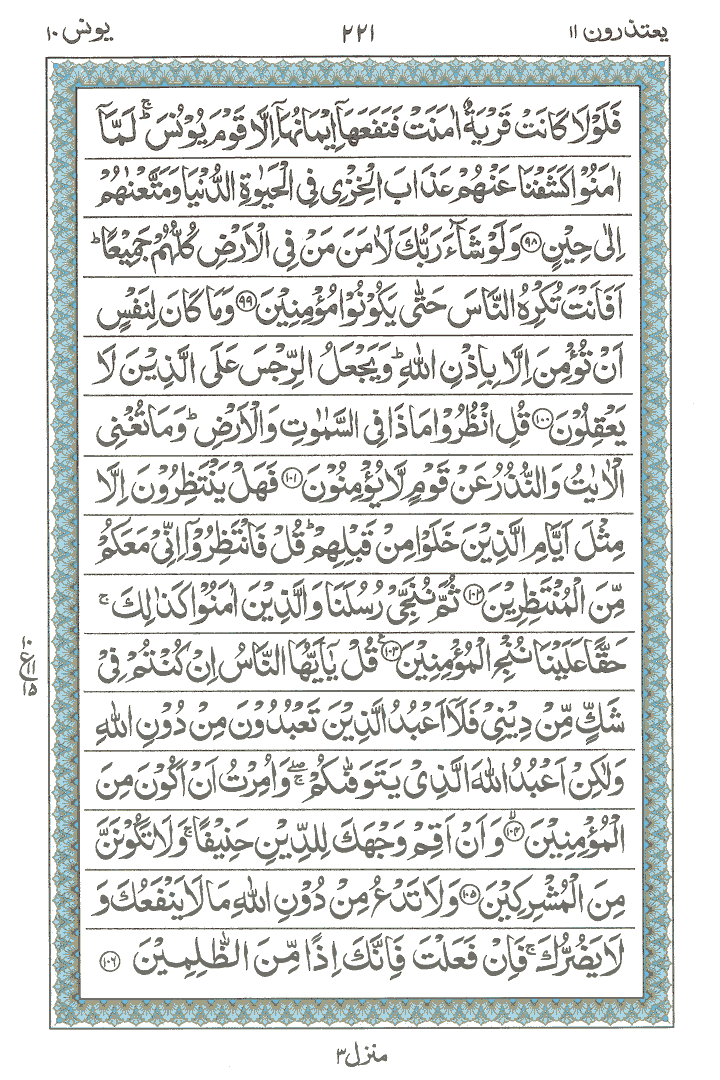 یعتذرون ۱۱
۲۲۱
یونس ۱۰
فَلَوْلَا كَانَتْ قَرْيَةٌ اٰمَنَتْ فَنَفَعَهَاۤ اِيْمَانُهَاۤ اِلَّا قَوْمَ يُوْنُسَ ؕۚ لَمَّاۤ
اٰمَنُوْا كَشَفْنَا عَنْهُمْ عَذَابَ الْخِزْىِ فِى الْحَيٰوةِ الدُّنْيَا وَمَتَّعْنٰهُمْ
اِلٰى حِيْنٍ ۹۸ وَلَوْ شَآءَ رَبُّكَ لَاٰمَنَ مَنْ فِى الْاَرْضِ كُلُّهُمْ جَمِيْعًا ؕ
اَفَاَنْتَ تُكْرِهُ النَّاسَ حَتّٰى يَكُوْنُوْا مُؤْمِنِيْنَ ۹۹ وَمَا كَانَ لِنَفْسٍ
اَنْ تُؤْمِنَ اِلَّا بِاِذْنِ اللّٰهِ ؕ وَيَجْعَلُ الرِّجْسَ عَلَى الَّذِيْنَ لَا
يَعْقِلُوْنَ ۱۰۰ قُلِ انْظُرُوْا مَاذَا فِى السَّمٰوٰتِ وَالْاَرْضِ ؕ وَمَا تُغْنِى
الْاٰيٰتُ وَالنُّذُرُ عَنْ قَوْمٍ لَّا يُؤْمِنُوْنَ ۱۰۱ فَهَلْ يَنْتَظِرُوْنَ اِلَّا
مِثْلَ اَيَّامِ الَّذِيْنَ خَلَوْا مِنْ قَبْلِهِمْ ؕ قُلْ فَانْتَظِرُوْۤا اِنِّىْ مَعَكُمْ
مِّنَ الْمُنْتَظِرِيْنَ ۱۰۲ ثُمَّ نُنَجِّىْ رُسُلَنَا وَالَّذِيْنَ اٰمَنُوْا كَذٰلِكَ ۚ
حَقًّا عَلَيْنَا نُنْجِ الْمُؤْمِنِيْنَ ۱۰۳ ع قُلْ يٰۤاَيُّهَا النَّاسُ اِنْ كُنْتُمْ فِىْ
۱۰
ع ۱۱
۱۵
شَكٍّ مِّنْ دِيْنِىْ فَلَاۤ اَعْبُدُ الَّذِيْنَ تَعْبُدُوْنَ مِنْ دُوْنِ اللّٰهِ
وَلٰكِنْ اَعْبُدُ اللّٰهَ الَّذِىْ يَتَوَفّٰٮكُمْ ۖۚ وَاُمِرْتُ اَنْ اَكُوْنَ مِنَ
الْمُؤْمِنِيْنَ ۙ ۱۰۴ وَاَنْ اَقِمْ وَجْهَكَ لِلدِّيْنِ حَنِيْفًا ۚ وَلَا تَكُوْنَنَّ
مِنَ الْمُشْرِكِيْنَ ۱۰۵ وَلَا تَدْعُ مِنْ دُوْنِ اللّٰهِ مَا لَا يَنْفَعُكَ وَ
لَا يَضُرُّكَ ۚ فَاِنْ فَعَلْتَ فَاِنَّكَ اِذًا مِّنَ الظّٰلِمِيْنَ ۱۰۶
منزل ۳